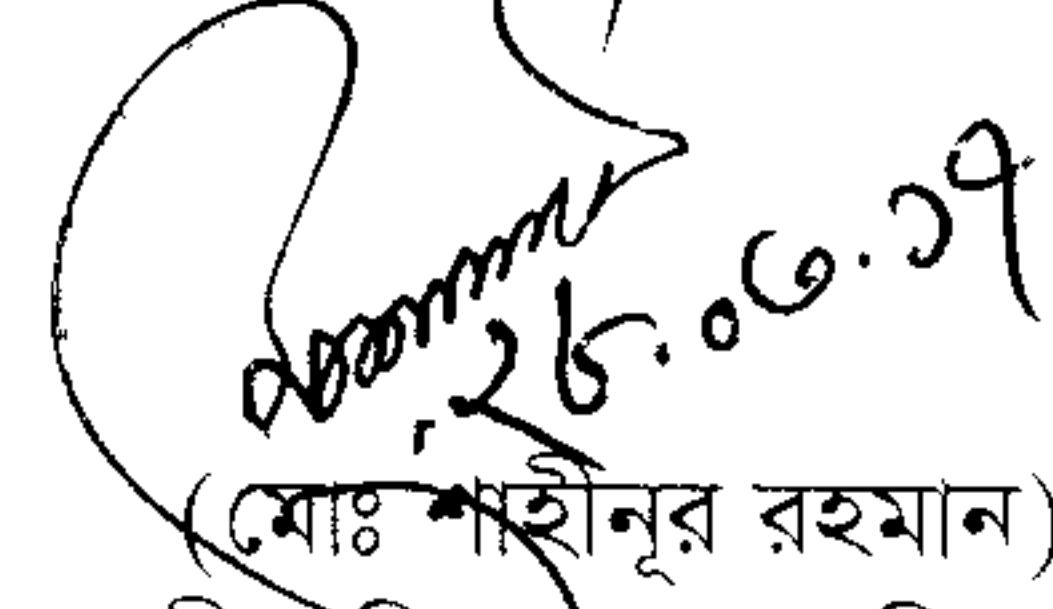 ২৮.০৩.১৭
(মোঃ শাহীনূর রহমান)